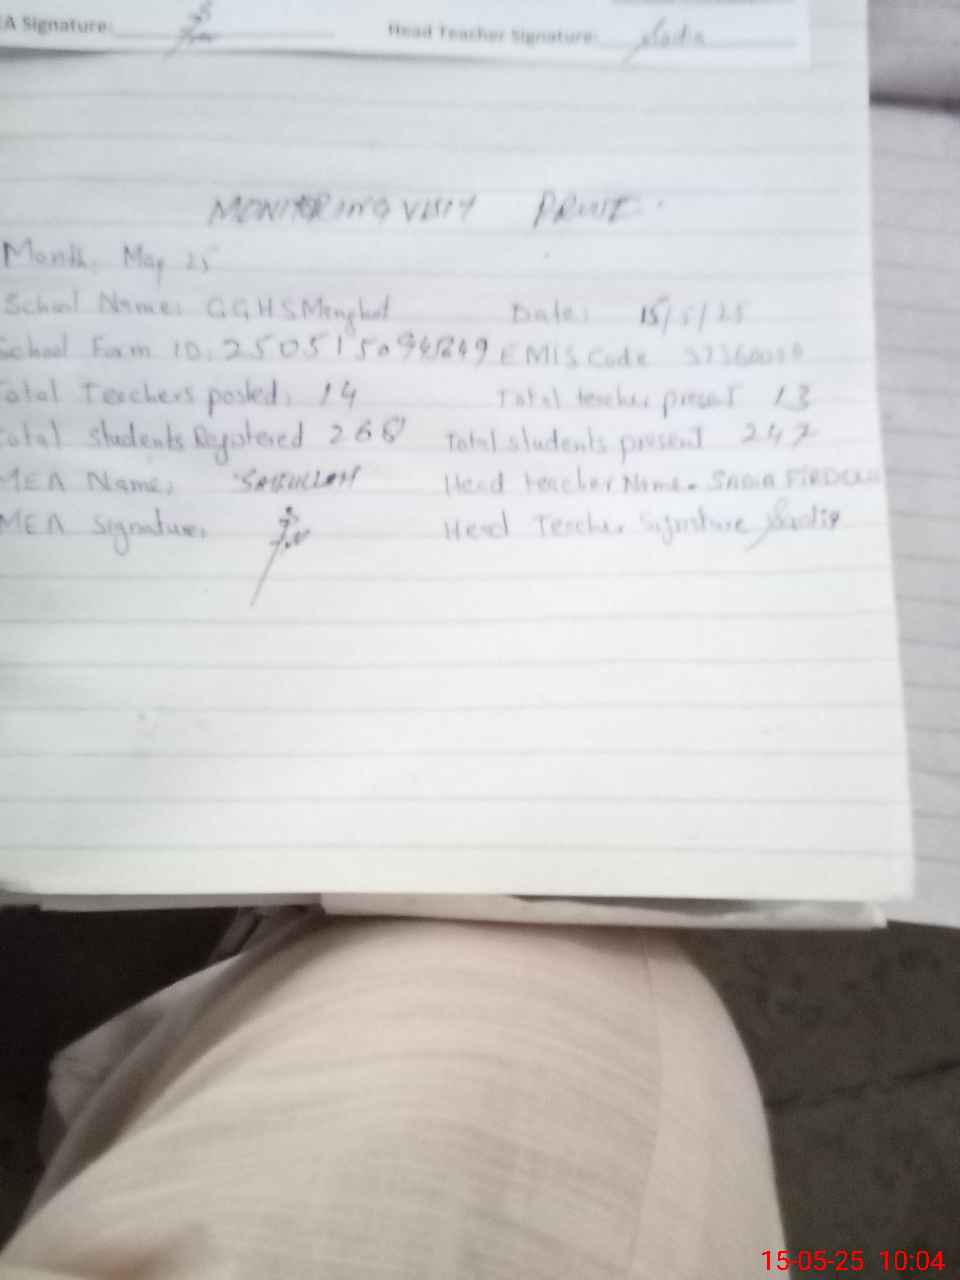 A Signature: Head Teacher Signature: Sadia
MONITERING VISIT PROUF.
Month: May 25
School Name: GGHS Date: 15/5/25
School Form ID: EMIS Code
otal Teachers posted: 14 Total teacher present 13
otal students Registered 268 Total students present 247
MEA Name: Head teacher Name. SADIA FIRDOUS
MEA Signature: Head Teacher Signature Sadia
15-05-25 10:04